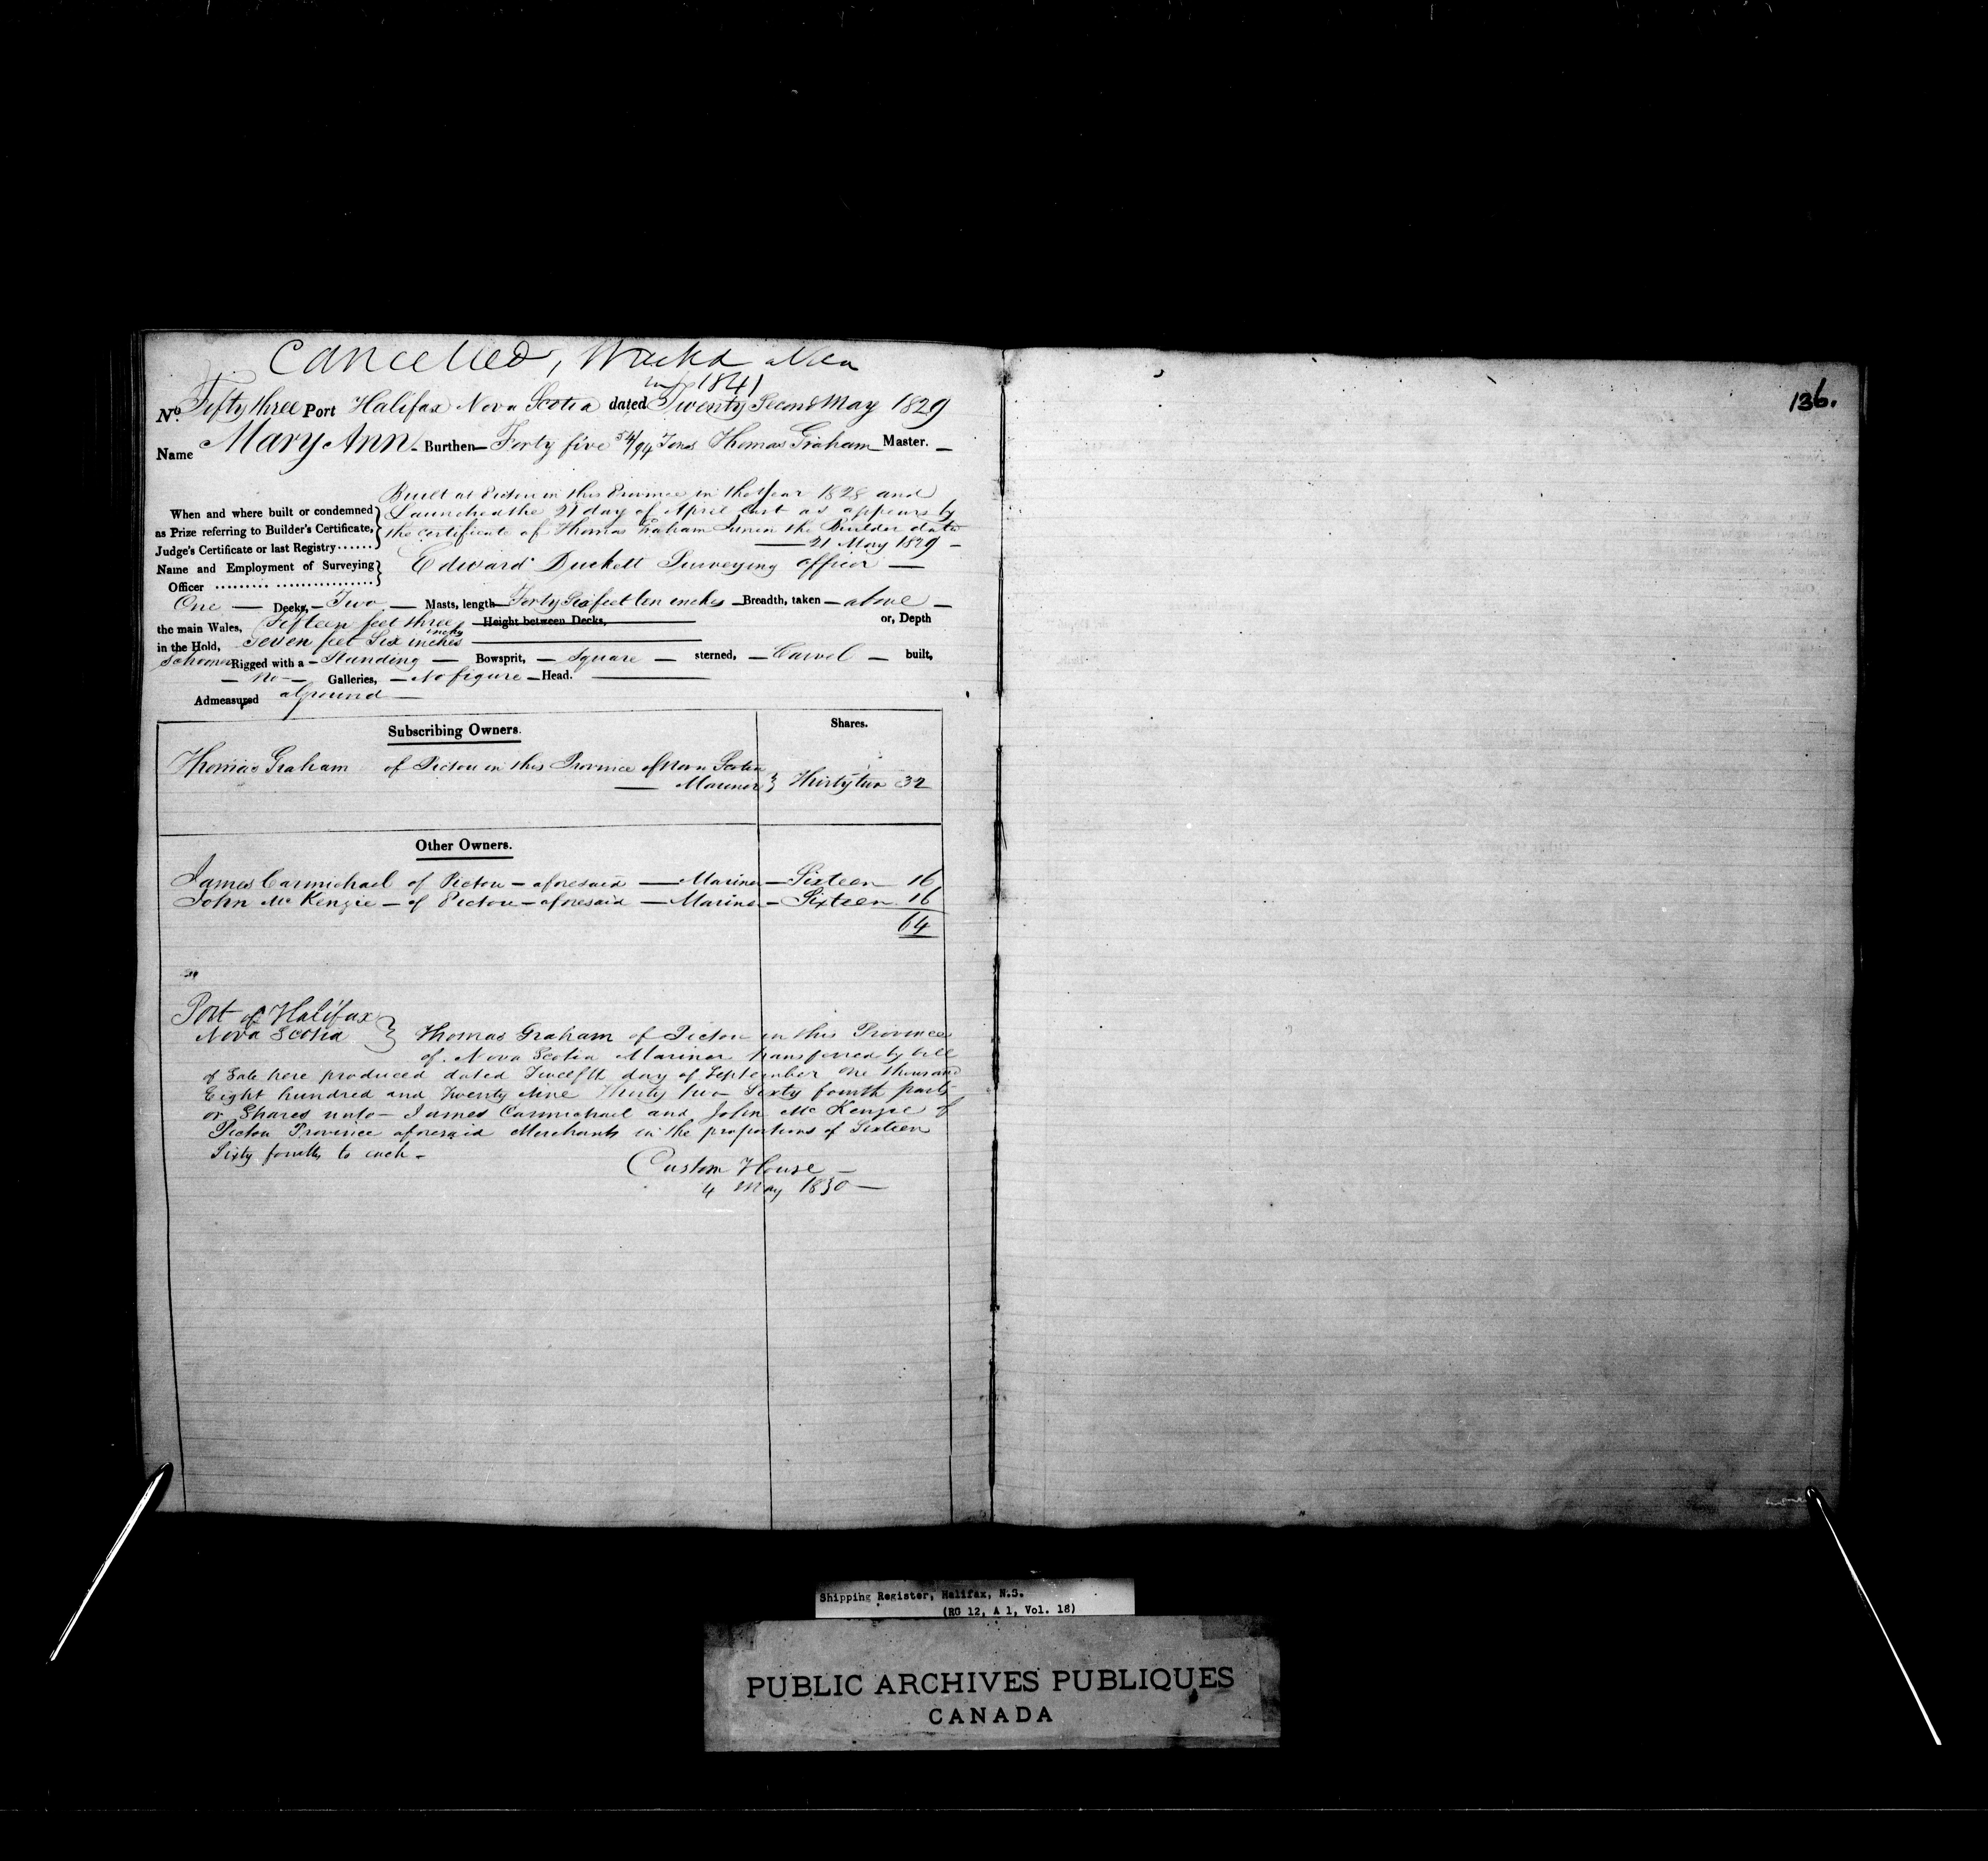 Cancelled, Wreckd
in 1841
No. Fifty three Port Halifax Nova Scotia dated Twenty Second May 1829
Name Mary Ann Burthen Forty five 54/94 Tons Thomas Graham Master.
Built at Pictou in this Province in the Year 1828 and
When and where built or condemned Launched the 21 day of April last as appears by
as Prize referring to Builder's Certificate, the certificate of Thomas Graham the Builder dated
Judge's Certificate or last Registry...... 21 May 1829
Name and Employment of Surveying Edward Duckett Surveying officer
Officer ......... ................
One Decks, Two Masts, length Forty Six feet ten inches Breadth, taken above
the main Wales, Fifteen feet three inches Height between Decks, or, Depth
in the Hold, Seven feet Six inches
Schooner Rigged with a Standing Bowsprit, Square sterned, Carvel built,
no Galleries, No figure Head.
Admeasured aground
Subscribing Owners. Shares.
Thomas Graham of Pictou in this Province of Nova Scotia
Mariner } Thirty two 32
Other Owners.
James Carmichael of Pictou aforesaid Mariner Sixteen 16
John McKenzie of Pictou aforesaid Mariner Sixteen 16
64
Port of Halifax
Nova Scotia } Thomas Graham of Pictou in this Province
of Nova Scotia Mariner transferred by bill
of Sale here produced dated Twelfth day of September One thousand
Eight hundred and Twenty Nine Thirty two Sixty fourth parts
or Shares unto James Carmichael and John McKenzie of
Pictou Province aforesaid Merchants in the proportions of Sixteen
Sixty fourths to each
Custom House
4 May 1830
136.
Shipping Register, Halifax, N.S.
(RG 12, A 1, Vol. 18)
PUBLIC ARCHIVES PUBLIQUES
CANADA